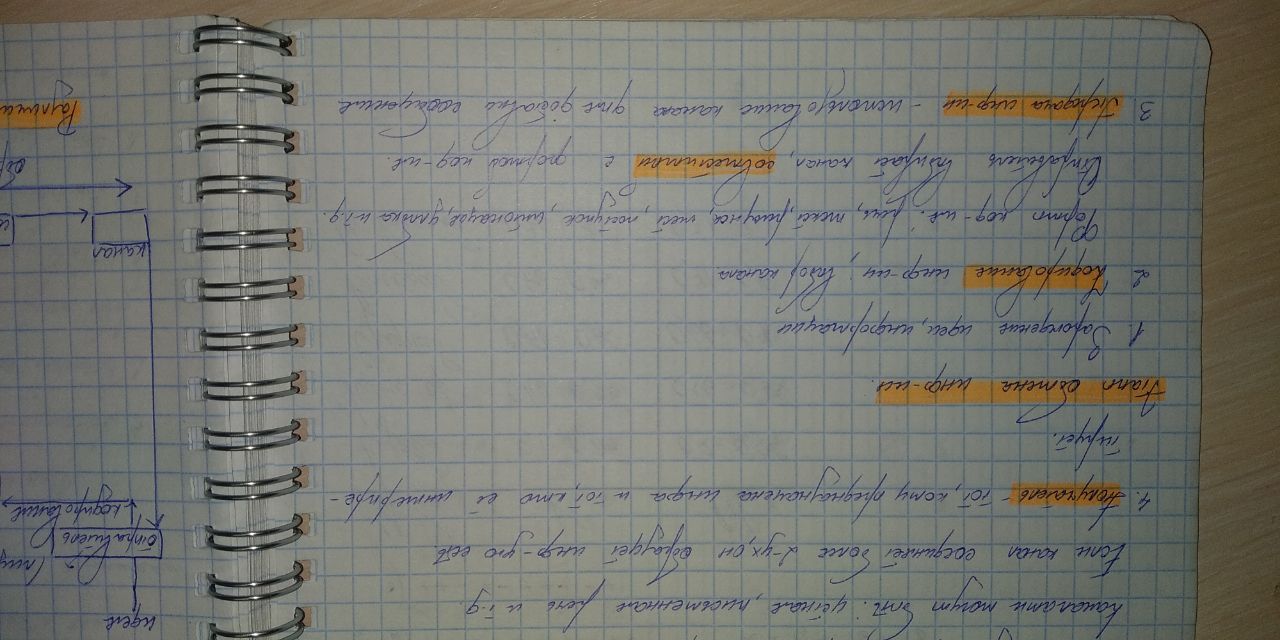 Каналами могут быть: устная, письменная речь и т.д.
Если канал соединяет более 2-ух, он образует инф-ую сеть.
4. Получатель - тот, кому предназначена инфа и тот, кто её интерпре-
тирует.
Этапы обмена инф-ии.
1. Зарождение идеи, информации
2. Кодирование инф-ии, выбор канала
Формы код-ия: речь, текст, рисунок, жест, поступок, интонация, улыбка и т.д.
Отправитель выбирает канал, совместимый с формой код-ия.
3. Передача инф-ии - использование канала для доставки сообщения
идея
отправитель
кодирование
канал